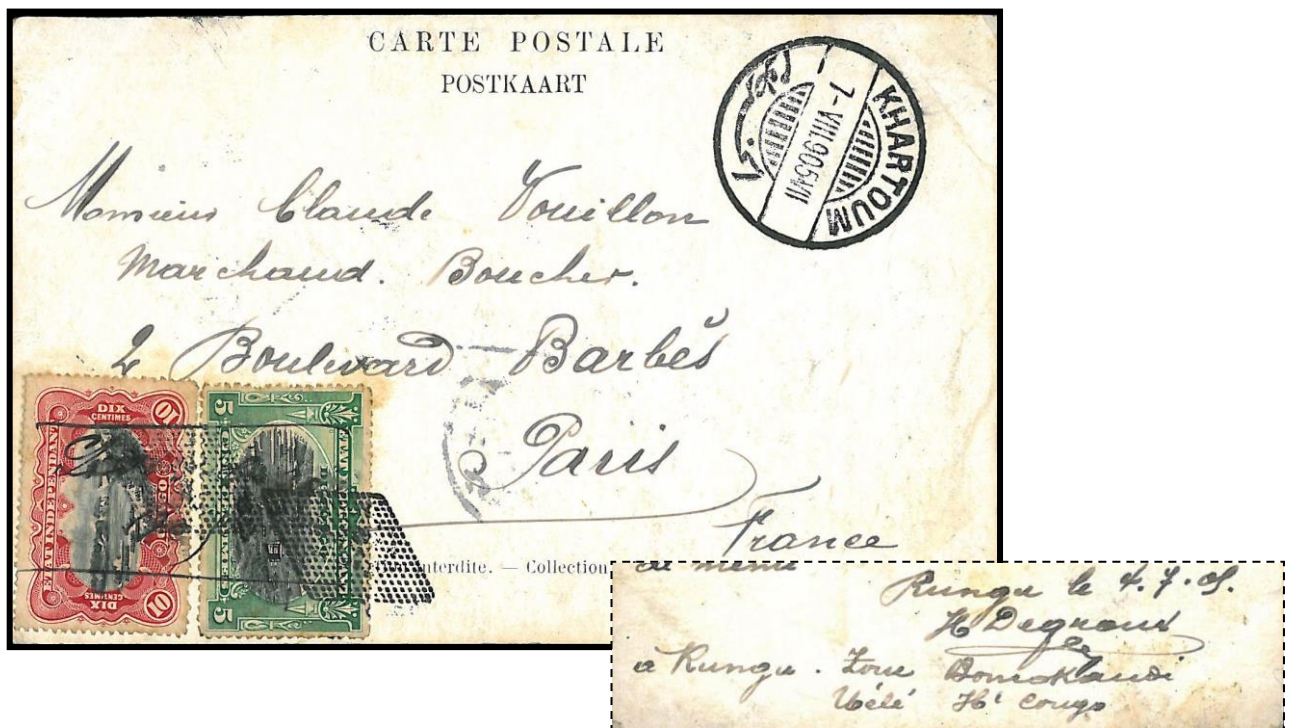 CARTE POSTALE
POSTKAART
KHARTOUM
7-VIII.905-VII
Monsieur Claude Vouillon
Marchand. Boucher.
2 Boulevard Barbès
Paris
France
DIX
CENTIMES
10
10
ETAT INDEPENDANT
DIX
CENTIMES
10
5
5
interdite. — Collection
de même
Rungu le 4.7.05.
H Degraux
à Rungu. Zone Bomokandi
Uélé Ht Congo